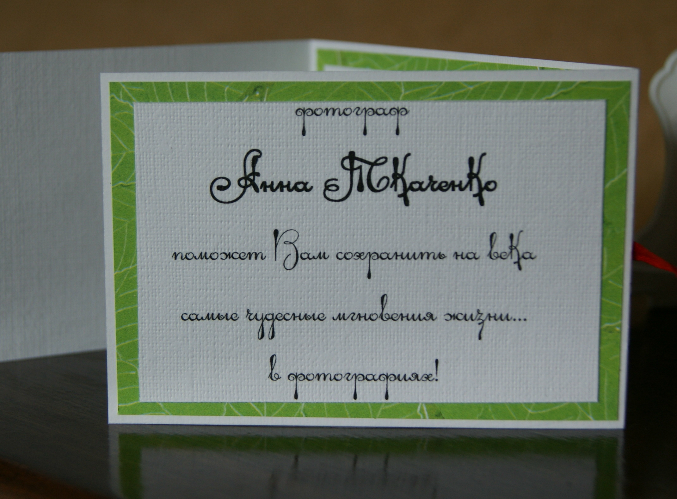 фотограф
Анна ТКаченКо
поможет Вам сохранить на веКа
самые чудесные мгновения жизни...
в фотографиях!